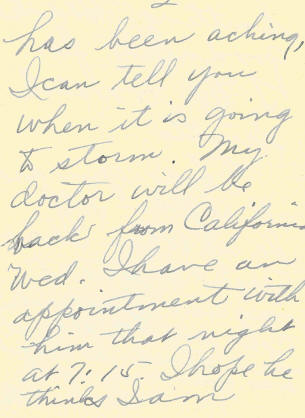 has been aching,
I can tell you
when it is going
to storm. My
doctor will be
back from California
Wed. I have an
appointment with
him that night
at 7:15. I hope he
thinks I am